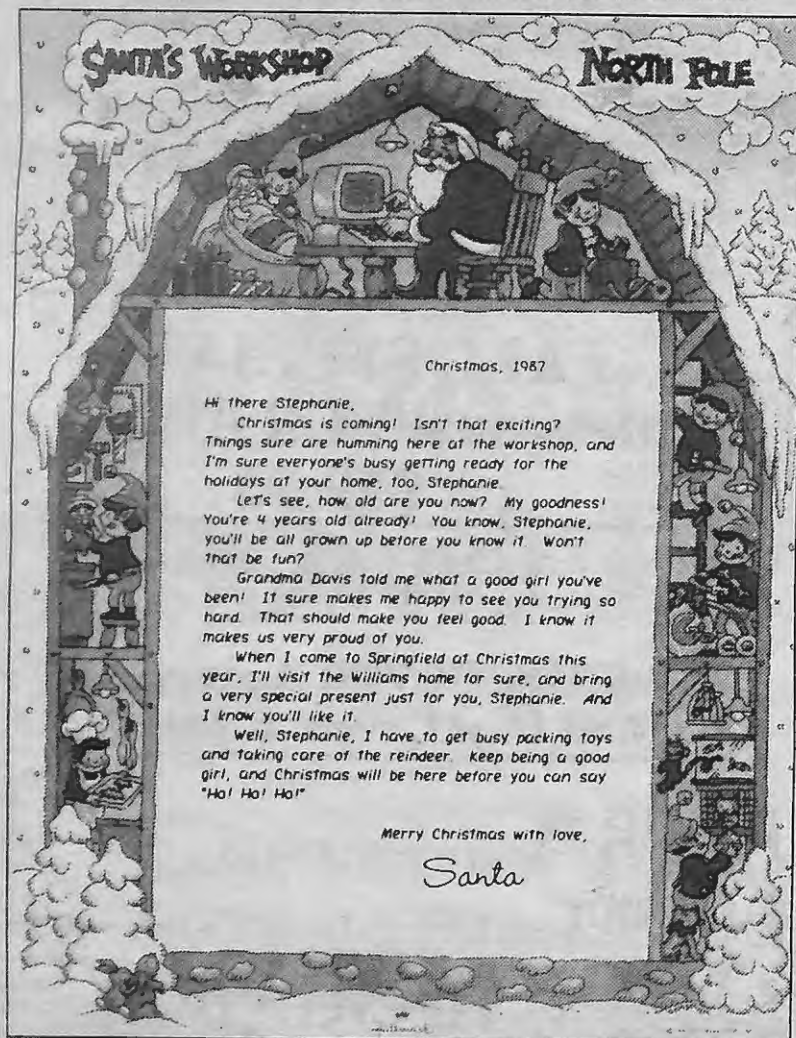 SANTA'S WORKSHOP
NORTH POLE
Christmas, 1987
Hi there Stephanie,
Christmas is coming! Isn't that exciting?
Things sure are humming here at the workshop, and
I'm sure everyone's busy getting ready for the
holidays at your home, too, Stephanie.
Let's see, how old are you now? My goodness!
You're 4 years old already! You know, Stephanie,
you'll be all grown up before you know it. Won't
that be fun?
Grandma Davis told me what a good girl you've
been! It sure makes me happy to see you trying so
hard. That should make you feel good. I know it
makes us very proud of you.
When I come to Springfield at Christmas this
year, I'll visit the Williams home for sure, and bring
a very special present just for you, Stephanie. And
I know you'll like it.
Well, Stephanie, I have to get busy packing toys
and taking care of the reindeer. Keep being a good
girl, and Christmas will be here before you can say
"Ho! Ho! Ho!"
Merry Christmas with love,
Santa